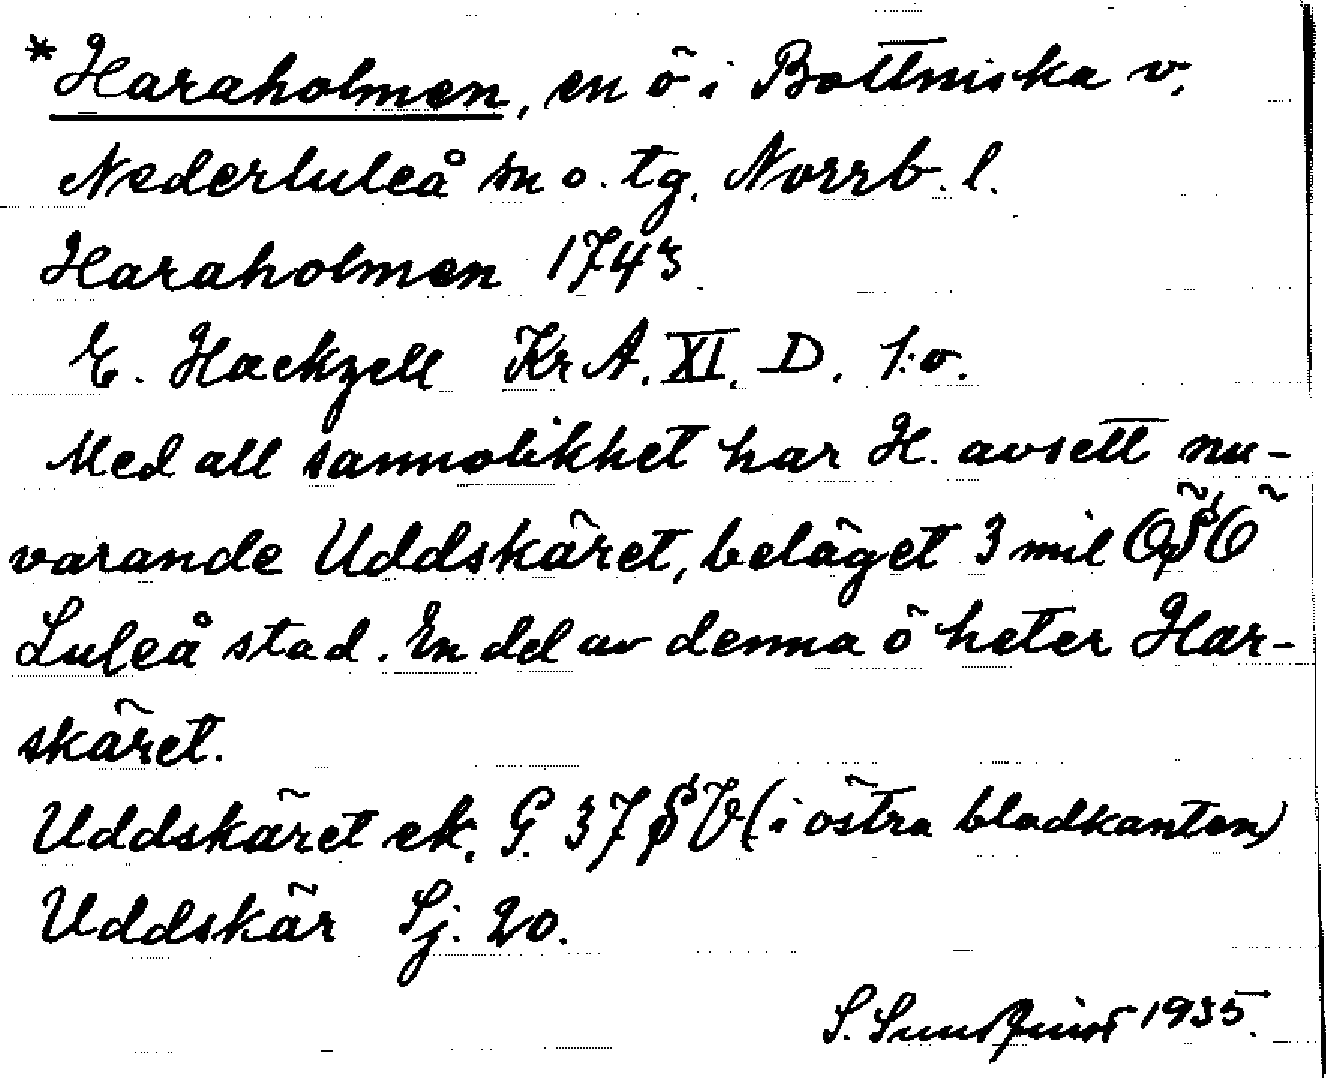 *Haraholmen, en ö i Bottniska v,
Nederluleå sn o. tg. Norrb. l.
Haraholmen 1743
E. Hackzell Kr A. XI. D. 1:o.
Med all sannolikhet har H. avsett nu-
varande Uddskäret, beläget 3 mil ÖSÖ
Luleå stad. En del av denna ö heter Har-
skäret.
Uddskäret ek. G. 37 SV (i östra bladkanten)
Uddskär Sj. 20.
S. Sundquist 1935.